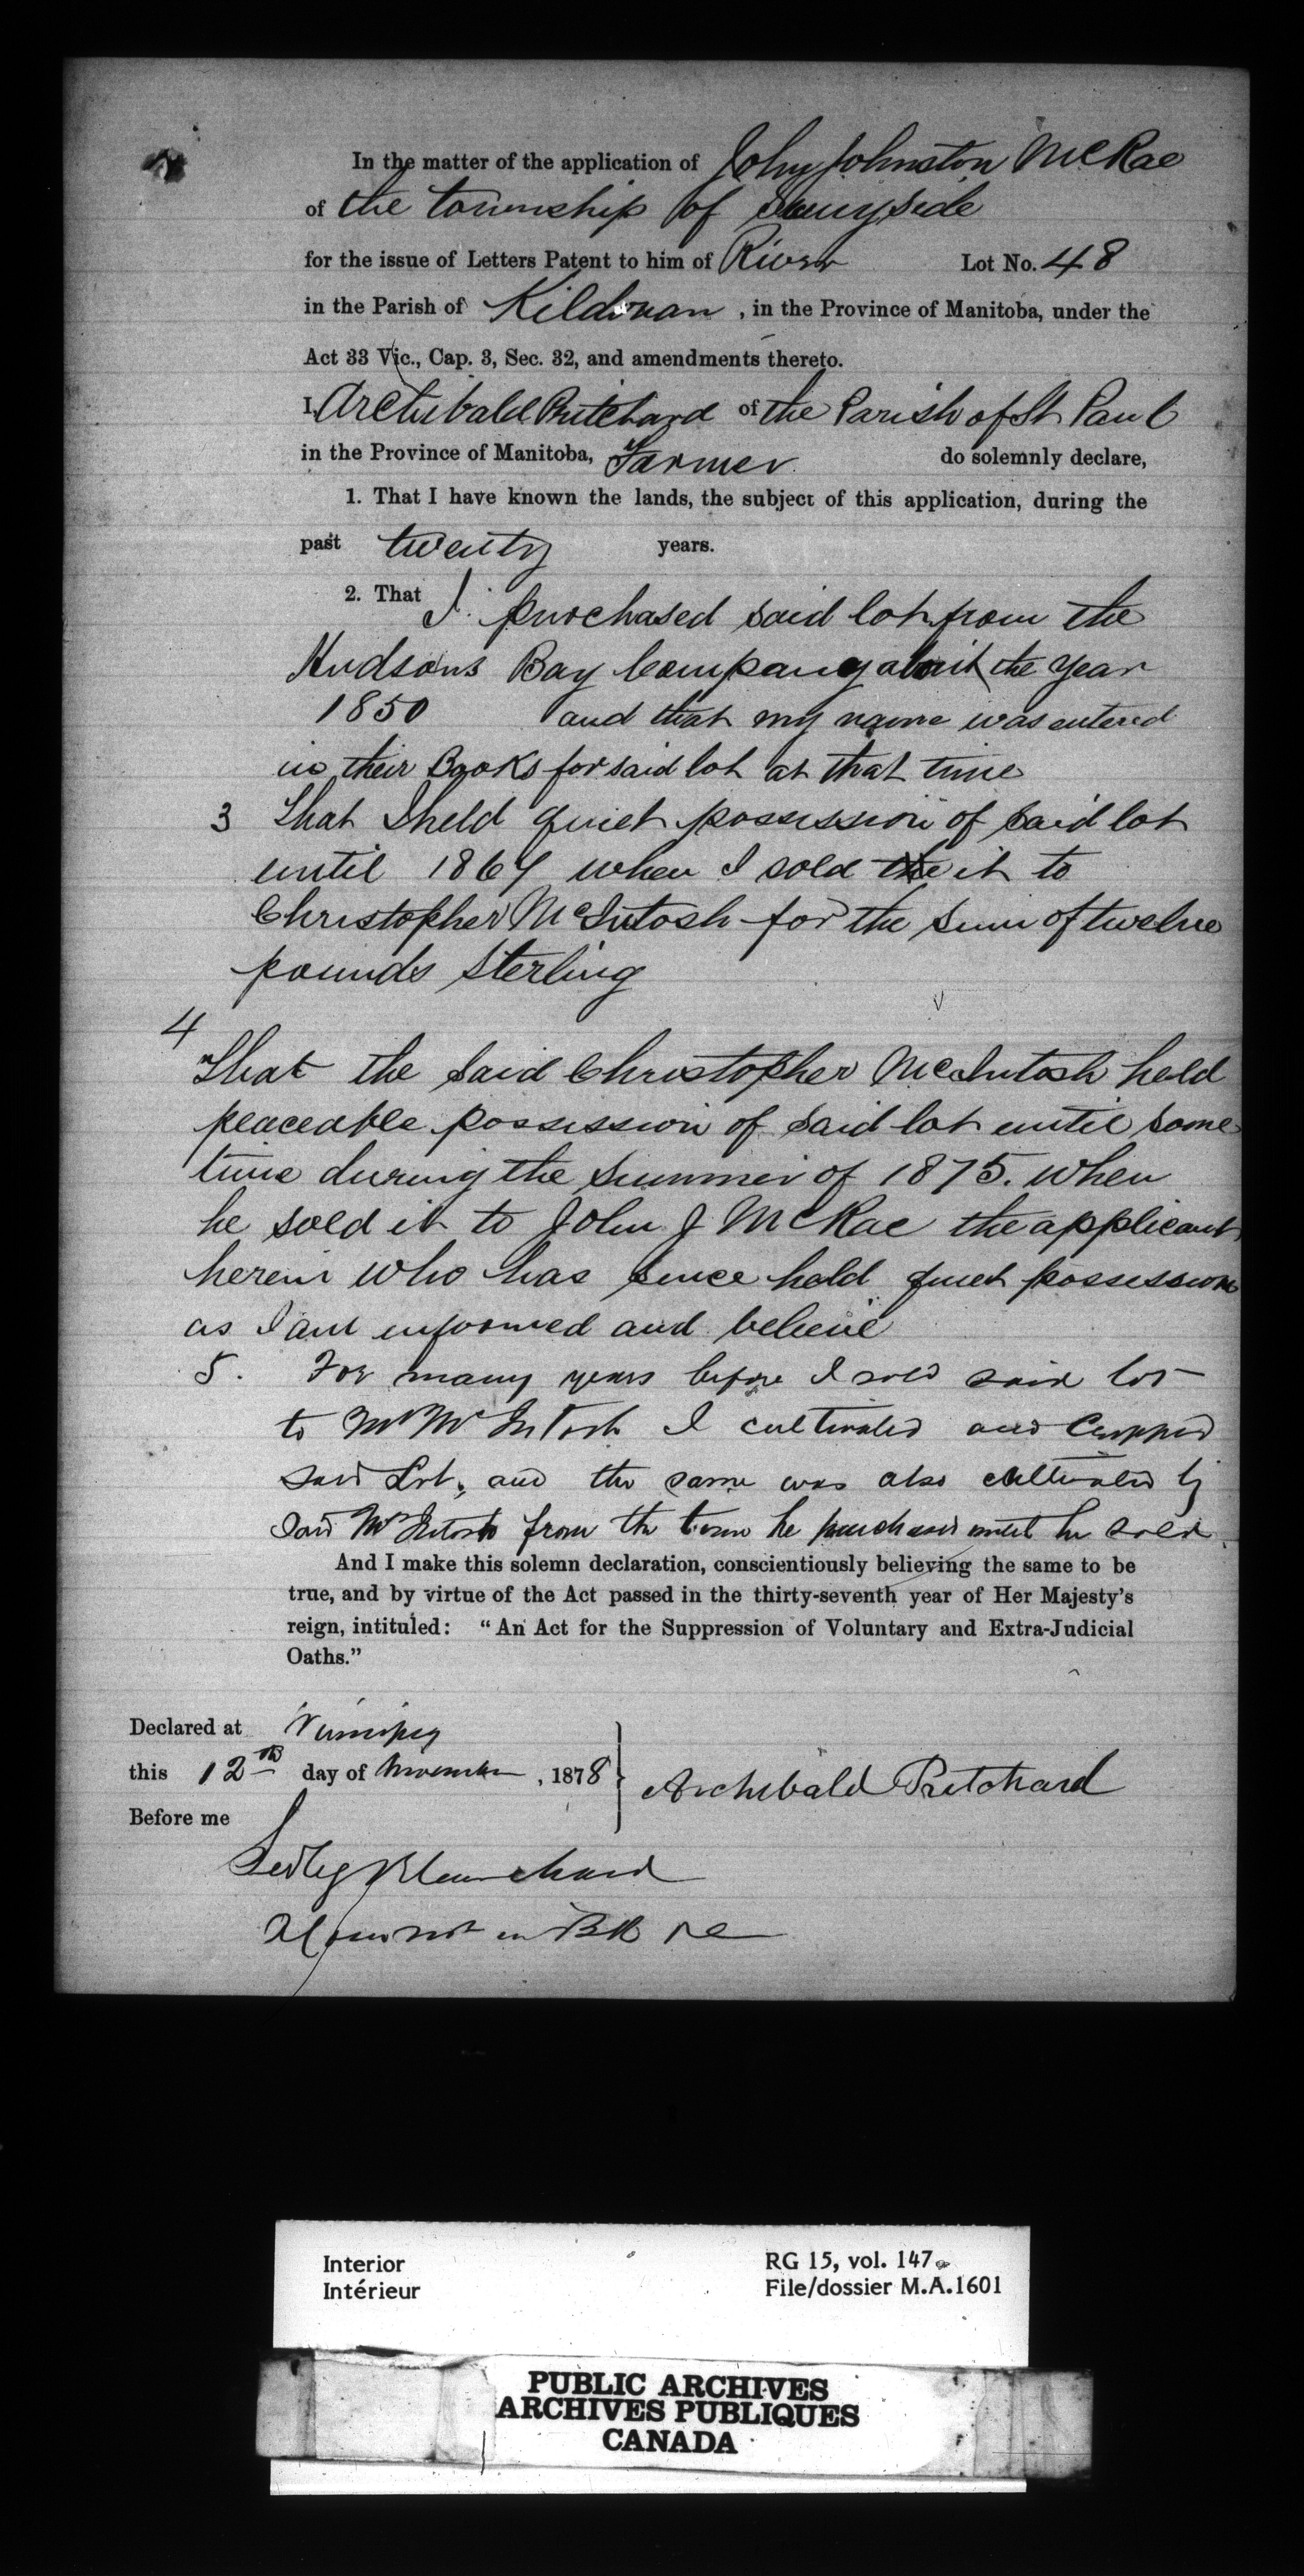 In the matter of the application of John Johnston McRae
of the township of Sunnyside
for the issue of Letters Patent to him of River Lot No. 48
in the Parish of Kildonan, in the Province of Manitoba, under the
Act 33 Vic., Cap. 3, Sec. 32, and amendments thereto.
I, Archibald Pritchard of the Parish of St Paul
in the Province of Manitoba, Farmer do solemnly declare,
1. That I have known the lands, the subject of this application, during the
past twenty years.
2. That I purchased said lot from the
Hudsons Bay Company about the year
1850 and that my name was entered
in their Books for said lot at that time
3 That I held quiet possession of said lot
until 1864 when I sold the it to
Christopher McIntosh for the sum of twelve
pounds Sterling
4
That the said Christopher McIntosh held
peaceable possession of said lot until some
time during the summer of 1875. when
he sold it to John J McRae the applicant
herein who has since held quiet possession
as I am informed and believe
5. For many years before I sold said lot
to Mr McIntosh I cultivated and cropped
said Lot, and the same was also cultivated by
said McIntosh from the time he purchased until he sold.
And I make this solemn declaration, conscientiously believing the same to be
true, and by virtue of the Act passed in the thirty-seventh year of Her Majesty's
reign, intituled: "An Act for the Suppression of Voluntary and Extra-Judicial
Oaths."
Declared at Winnipeg
this 12th day of November, 1878
Before me
Archibald Pritchard
Sedley Blanchard
in BR
Interior
Intérieur
RG 15, vol. 147
File/dossier M.A.1601
PUBLIC ARCHIVES
ARCHIVES PUBLIQUES
CANADA